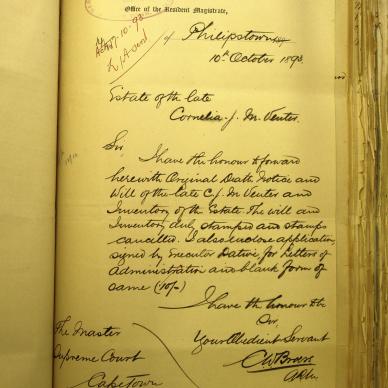 Office of the Resident Magistrate,
of Philipstown
10th October 1893
Estate of the late
Cornelia J. M. Venter.
Sir
I have the honour to forward
herewith Original Death Notice and
Will of the late C. J. M Venter and
Inventory of the Estate. The will and
Inventory duly stamped and stamps
cancelled. I also enclose application,
signed by Executor Dative, for Letters of
Administration and blank form of
same (10/-)
I have the honour to be
Sir,
Your Obedient Servant
The Master
Supreme Court
Capetown